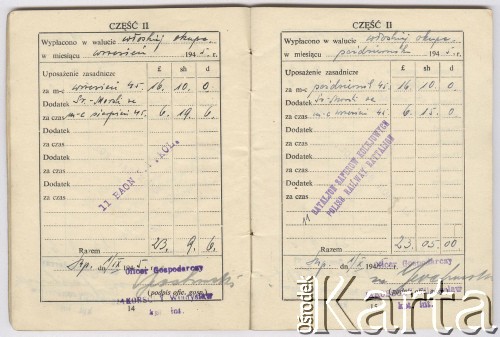 CZĘŚĆ II
Wypłacono w walucie włoskiej okup.
w miesiącu wrzesień 1945 r.
Uposażenie zasadnicze £ sh d
za m-c wrzesień 45. 16. 10. 0.
Dodatek
za czas m-c sierpień 45. 6. 19. 6.
Dodatek
za czas
Dodatek
za czas
Dodatek
za czas
Razem 23. 9. 6.
dn. 1/IX 1945
Oficer Gospodarczy
(podpis ofic. gosp.)
kpt. inż.
14
CZĘŚĆ II
Wypłacono w walucie włoskiej okup.
w miesiącu październik 1945 r.
Uposażenie zasadnicze £ sh d
za m-c październik 45. 16. 10. 0
Dodatek
za czas m-c wrzesień 45. 6. 15. 0.
Dodatek
za czas
Dodatek
za czas
Dodatek
za czas
11 BATALJON NAPRAW KOLEJOWYCH
POLISH RAILWAY BATTALION
Razem 23. 05. 00
Oficer Gospodarczy
kpt. inż.
15
Ośrodek
Karta